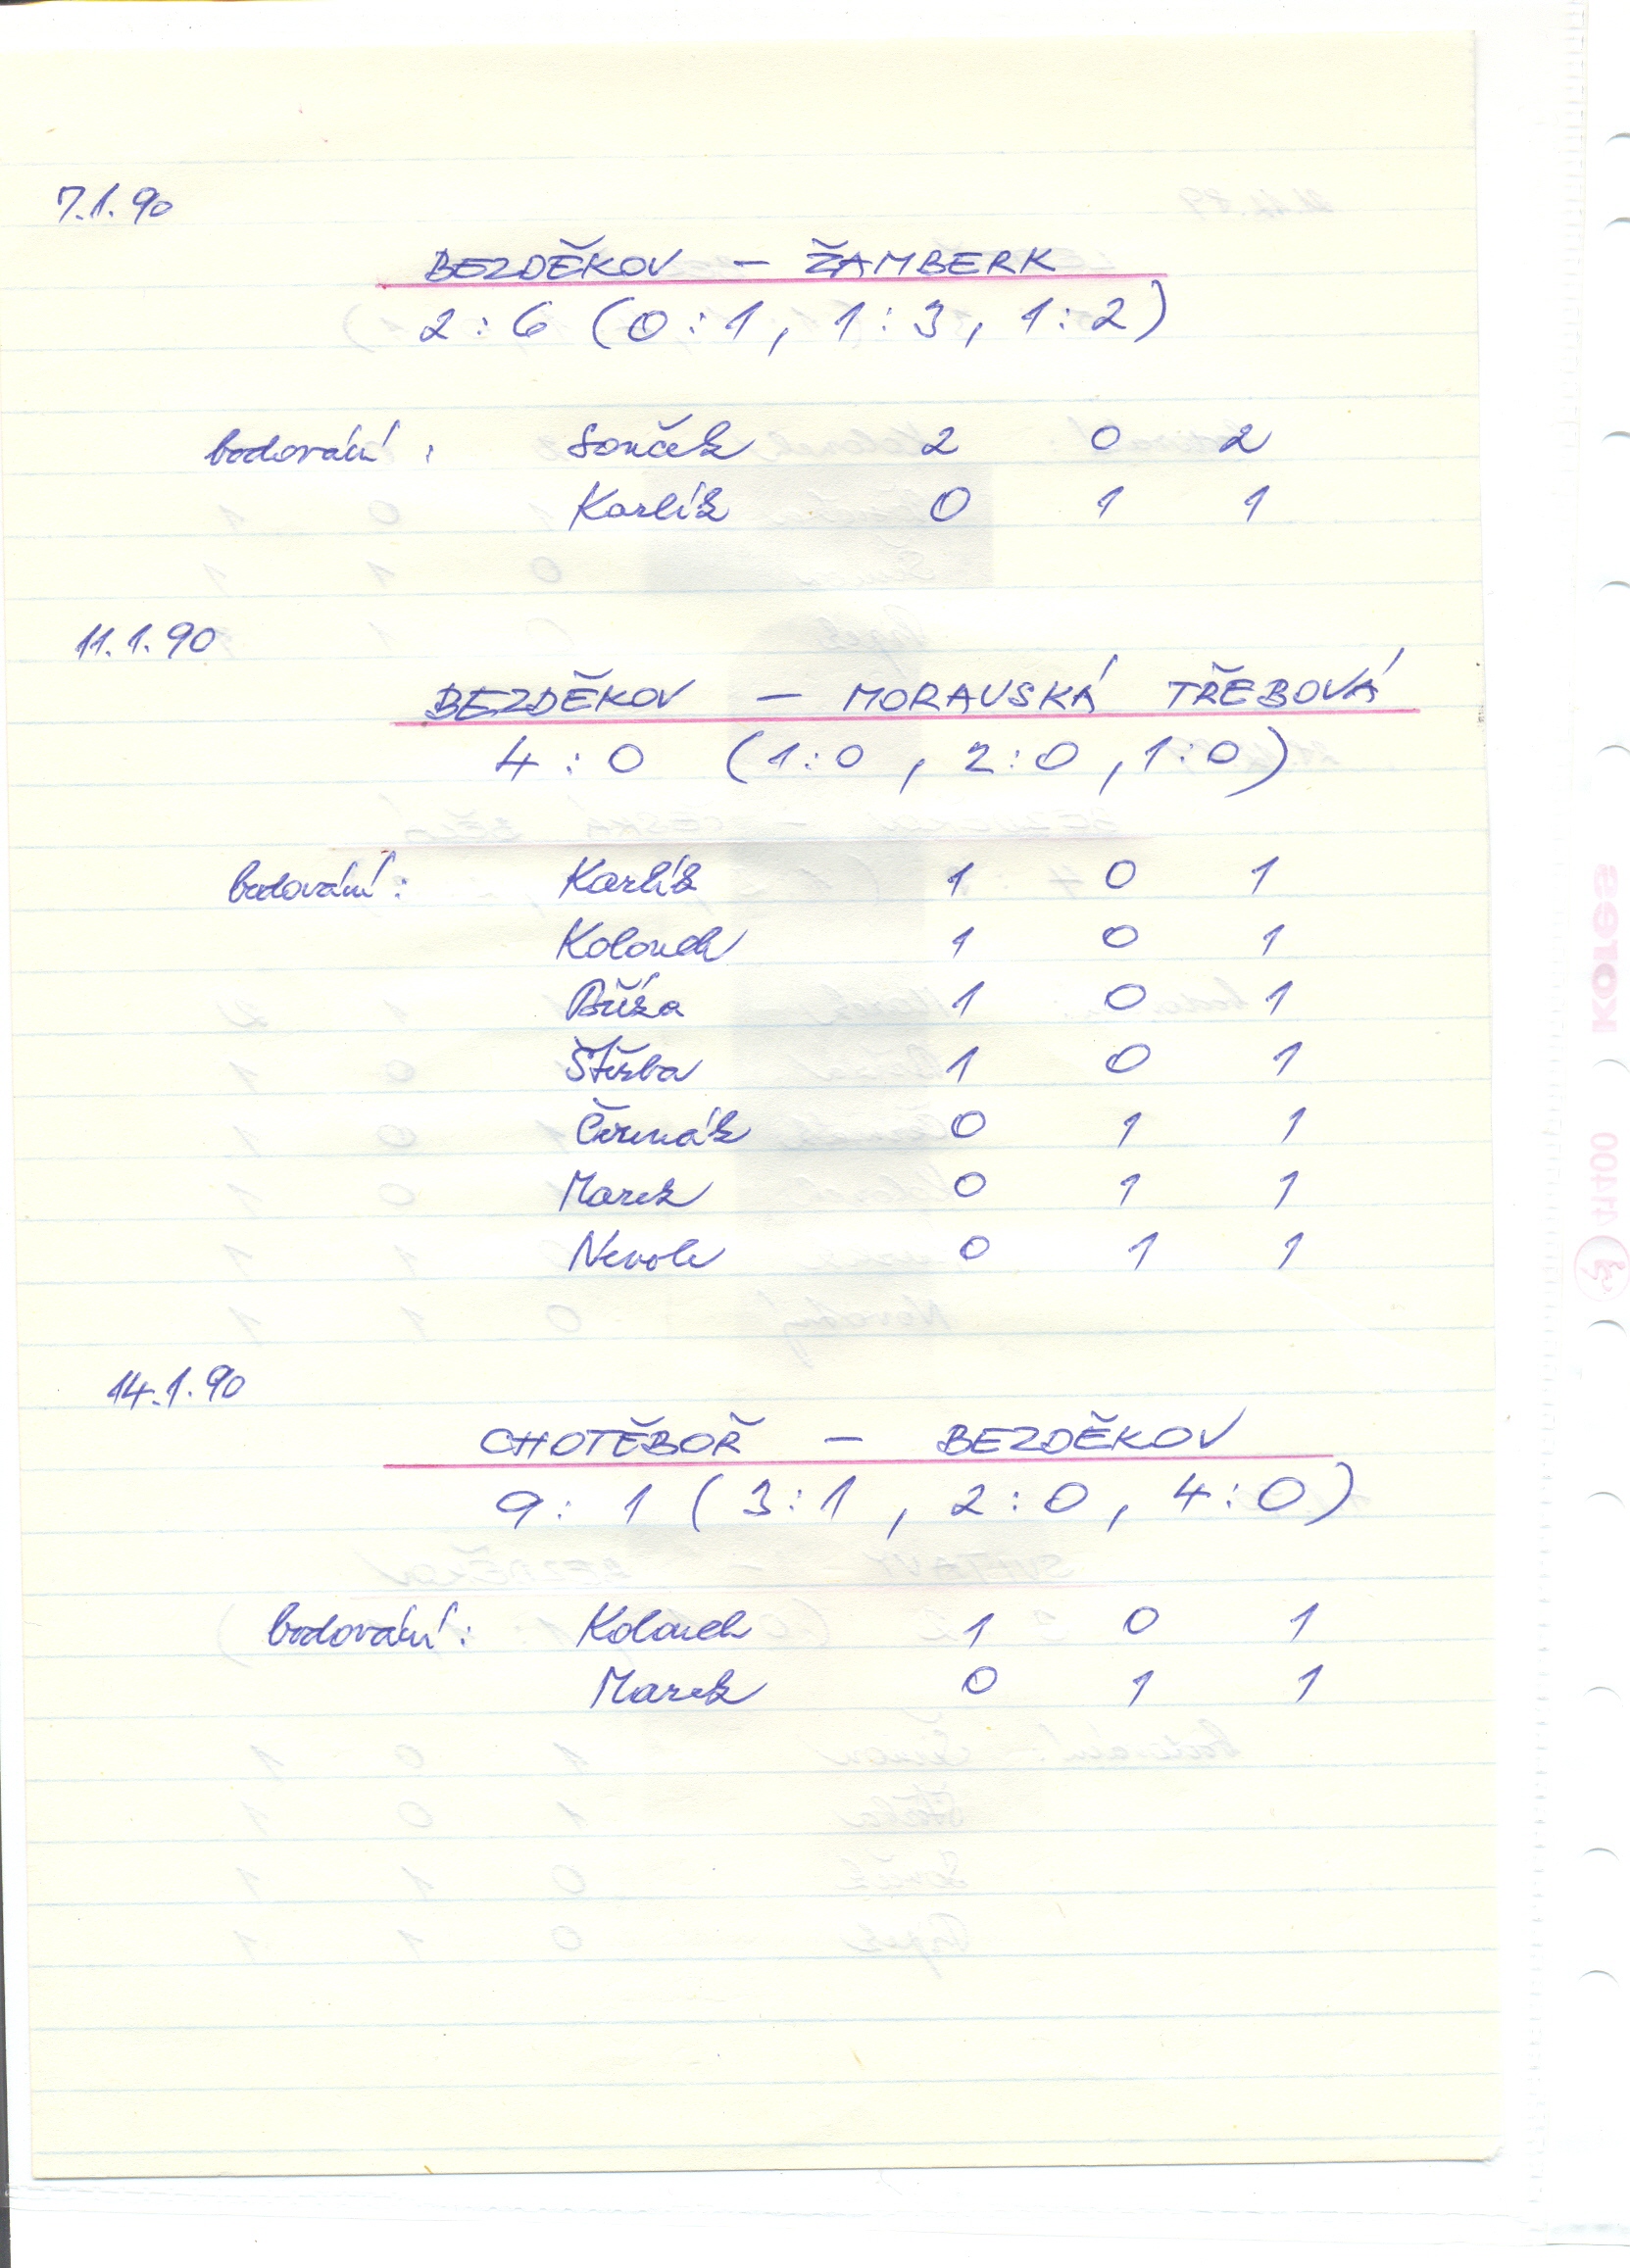 7.1.90
BEZDĚKOV – ŽAMBERK
2 : 6 ( 0 : 1 , 1 : 3 , 1 : 2 )
bodování : Souček 2 0 2
Karlík 0 1 1
11.1.90
BEZDĚKOV – MORAVSKÁ TŘEBOVÁ
4 : 0 ( 1 : 0 , 2 : 0 , 1 : 0 )
bodování : Karlík 1 0 1
Kolouch 1 0 1
Bříza 1 0 1
Štěrba 1 0 1
Čermák 0 1 1
Marek 0 1 1
Nevole 0 1 1
14.1.90
CHOTĚBOŘ – BEZDĚKOV
9 : 1 ( 3 : 1 , 2 : 0 , 4 : 0 )
bodování : Kolouch 1 0 1
Marek 0 1 1
kores